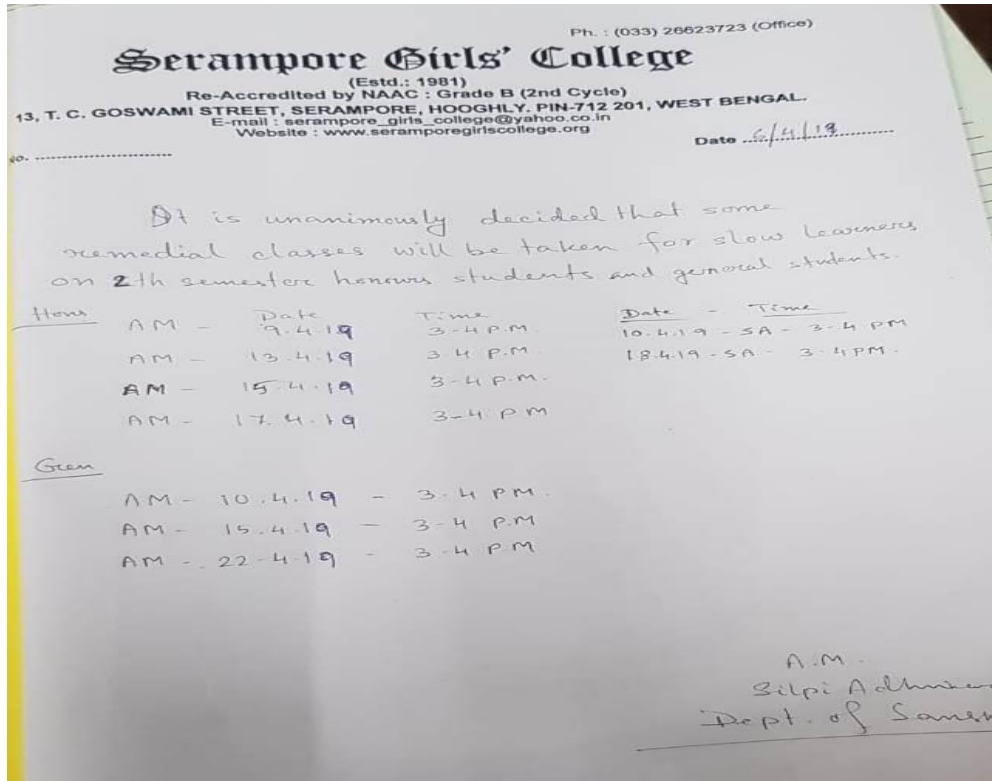 Ph. : (033) 26623723 (Office)
Serampore Girls' College
(Estd.: 1981)
Re-Accredited by NAAC : Grade B (2nd Cycle)
13, T. C. GOSWAMI STREET, SERAMPORE, HOOGHLY. PIN-712 201, WEST BENGAL.
E-mail : serampore_girls_college@yahoo.co.in
Website : www.seramporegirlscollege.org
No. ............................ Date ...6/4/19...............
It is unanimously decided that some
remedial classes will be taken for slow learners
on 2th semester honours students and general students.
Hons Date Time Date - Time
AM - 9.4.19 3-4 P.M. 10.4.19 - SA - 3-4 PM
AM - 13.4.19 3-4 P.M. 18.4.19 - SA - 3-4 PM.
AM - 15.4.19 3-4 P.M.
AM - 17.4.19 3-4 P M
Gen
AM - 10.4.19 - 3-4 PM.
AM - 15.4.19 - 3-4 P.M
AM - 22-4-19 - 3-4 PM
A.M.
Silpi
Dept. of